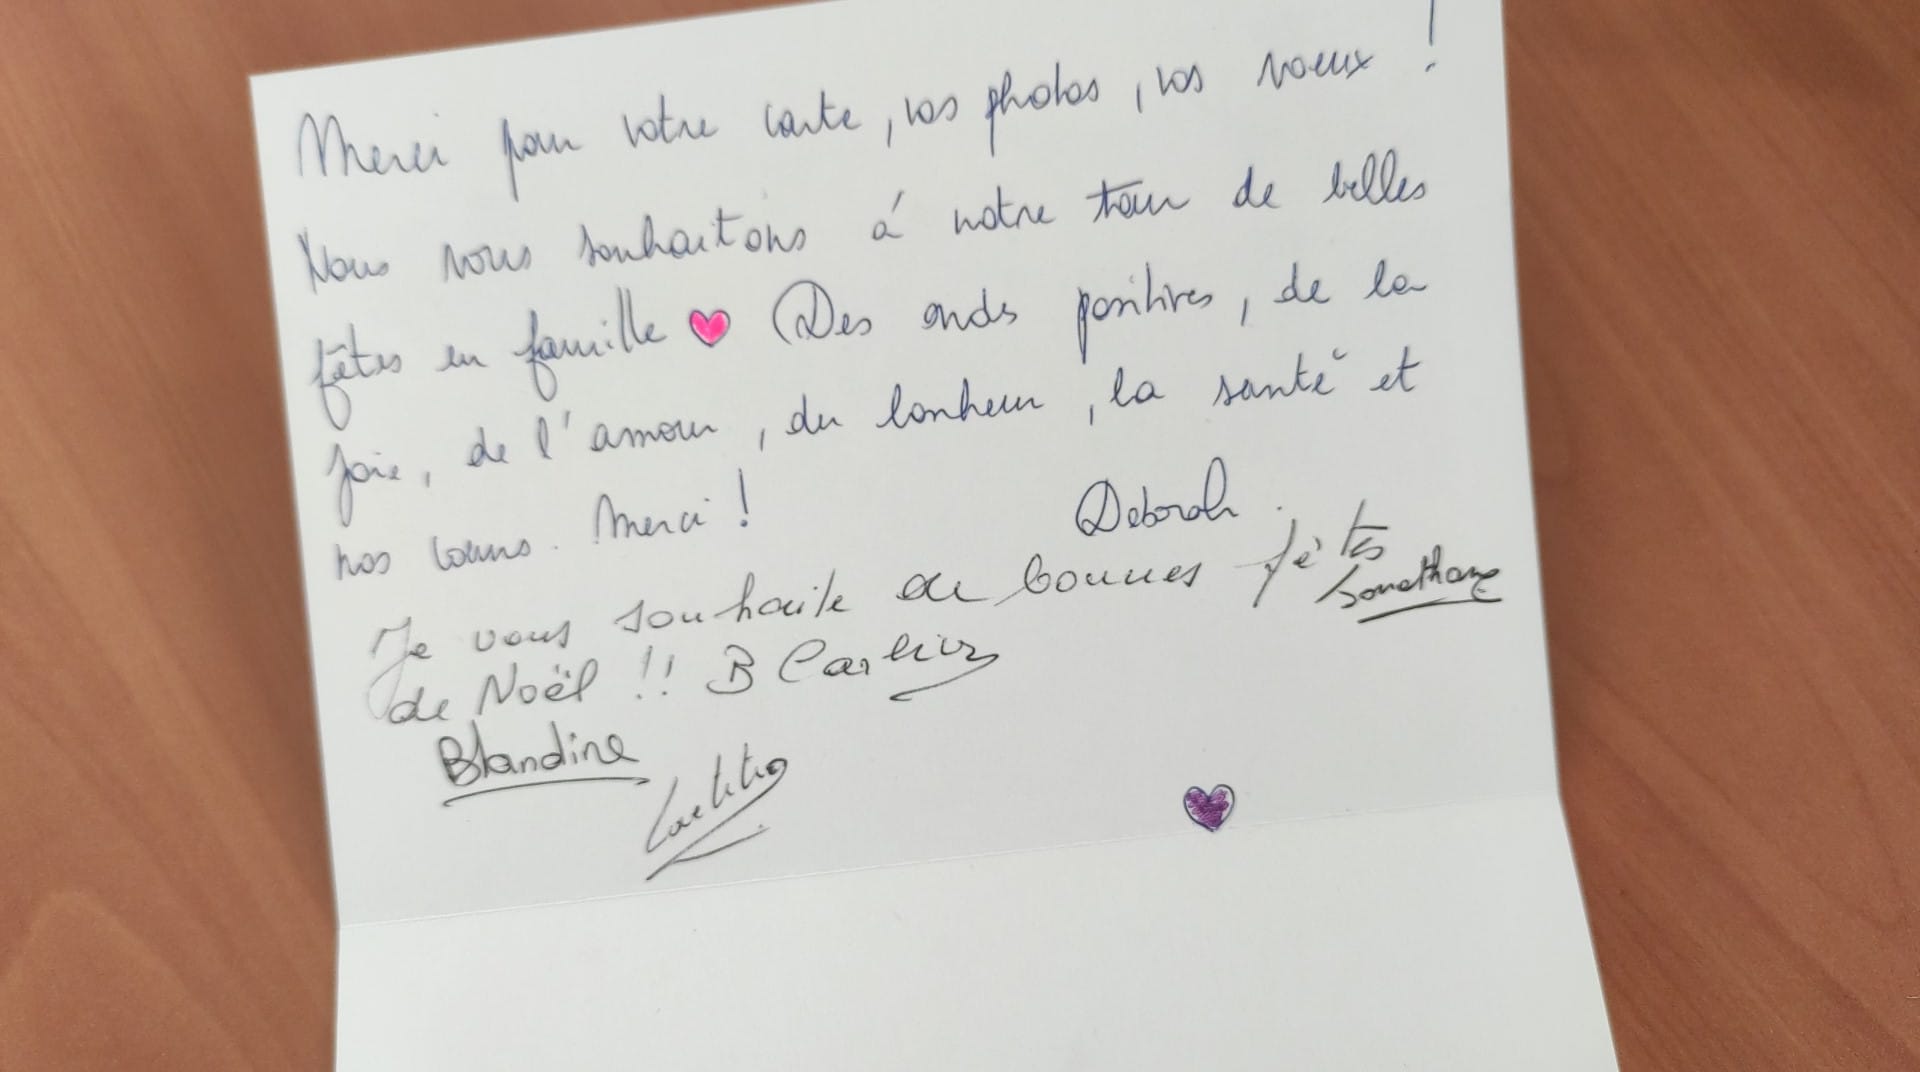 Merci pour votre carte, vos photos, vos voeux !
Nous vous souhaitons à notre tour de belles
fêtes en famille Des ondes positives, de la
joie, de l'amour, du bonheur, la santé et
nos coeurs. Merci !
Deborah.
Je vous souhaite de bonnes fêtes
Jonathan
de Noël !! B
Blandine
Laetitia